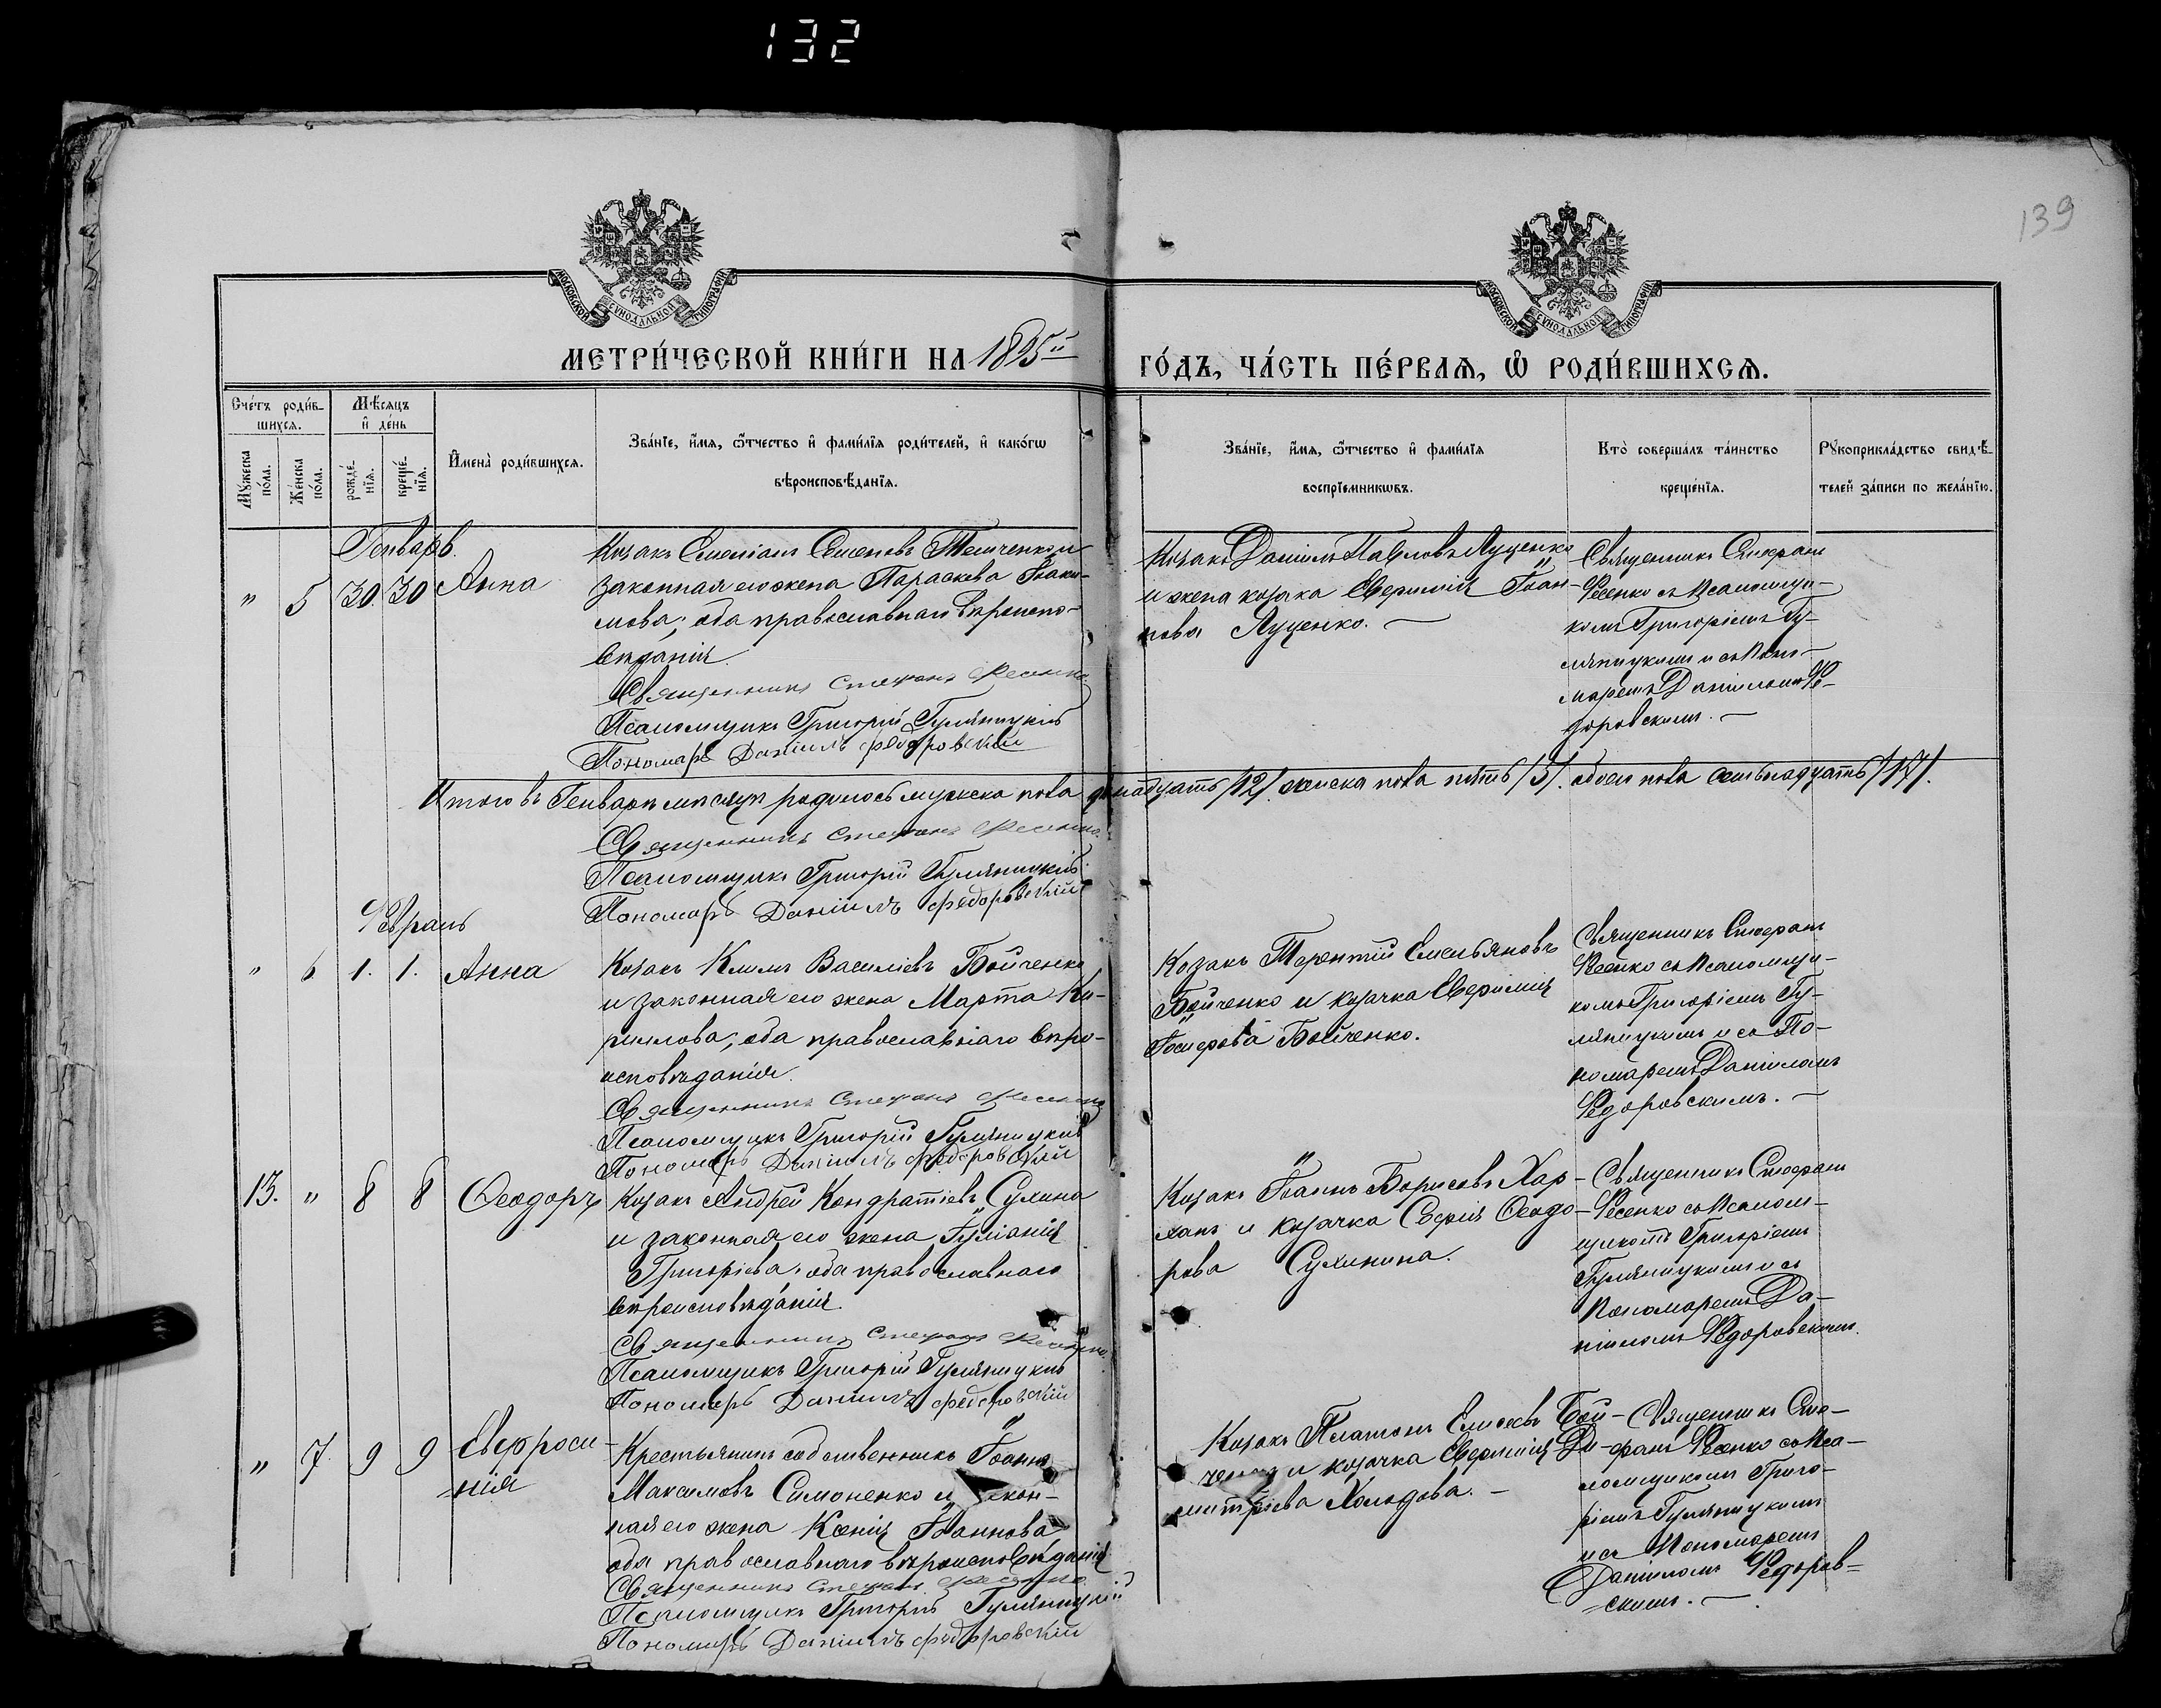 132
139
МОСКОВСКОЙ СѴНОДАЛЬНОЙ ТИПОГРАФІИ
МОСКОВСКОЙ СѴНОДАЛЬНОЙ ТИПОГРАФІИ
МЕТРИ́ЧЕСКОЙ КНИ́ГИ НА 1895й
ГО́ДЪ, ЧА́СТЬ ПЕ́РВАЯ, Ѽ РОДИ́ВШИХСЯ.
Сче́тъ роди́в-
шихся.
Мѣ́сяцъ
и҆ де́нь
Мꙋ́жеска по́ла.
Же́нска по́ла.
рожде́-
нїя.
креще́-
нїя.
И҆мена̀ роди́вшихся.
Зва́нїе, и҆́мя, ѻ҆́тчество и҆ фами́лїя роди́телей, и҆ како́гѡ
вѣроисповѣ́данїя.
Зва́нїе, и҆́мя, ѻ҆́тчество и҆ фами́лїя
воспрїе́мникѡвъ.
Кто̀ соверша́лъ та́инство
креще́нїя.
Рꙋкоприкла́дство свидѣ́-
телей за́писи по жела́нїю.
Генварь.
" 5 30. 30 Анна
Козакъ Симеонъ Семеновъ и
законная его жена Параскева Іоаки-
мова; оба православнаго вѣроиспо-
вѣданія.
Священникъ Стефанъ Фесенко.
Псаломщикъ Григорій Гуляницкій
Пономарь Даніилъ Федоровскій
Козакъ Даніилъ Павловъ Луценко
и жена козака Евфимія Іоан-
нова Луценко. —
Священникъ Стефанъ
Фесенко съ Псаломщи-
комъ Григоріемъ Гу-
ляницкимъ и съ Поно-
маремъ Даніиломъ Фе-
доровскимъ. —
Итого въ Генварѣ мѣсяцѣ родилось мужеска пола двѣнадцать /12/. женска пола пять /5/. обоего пола семьнадцать /17/.
Священникъ Стефанъ Фесенко.
Псаломщикъ Григорій Гуляницкій
Пономарь Даніилъ Федоровскій
Февраль
" 6 1. 1. Анна
Козакъ Климъ Василіевъ Бойченко
и законная его жена Марта Ки-
риллова; оба православнаго вѣро-
исповѣданія.
Священникъ Стефанъ Фесенко
Псаломщикъ Григорій Гуляницкій
Пономарь Даніилъ Федоровскій
Козакъ Терентій Емельяновъ
Бойченко и козачка Евфимія
Іосифова Бойченко.
Священникъ Стефанъ
Фесенко съ Псаломщи-
комъ Григоріемъ Гу-
ляницкимъ и съ По-
номаремъ Даніиломъ
Федоровскимъ. —
13. " 8 8 Ѳеодоръ
Козакъ Андрей Кондратіевъ Сулима
и законная его жена Іуліанія
Григоріева; оба православнаго
вѣроисповѣданія.
Священникъ Стефанъ Фесенко.
Псаломщикъ Григорій Гуляницкій
Пономарь Даніилъ Федоровскій
Козакъ Іоаннъ Борисовъ Хар-
ланъ и козачка Ѳеодо-
рова
Священникъ Стефанъ
Фесенко съ Псалом-
щикомъ Григоріемъ
Гуляницкимъ и съ
Пономаремъ Да-
ніиломъ Федоровскимъ.
" 7. 9 9 Евфроси-
нія
Крестьянинъ собственникъ Іоаннъ
Максимовъ Симоненко и закон-
ная его жена Ксенія Іоаннова
оба православнаго вѣроисповѣданія.
Священникъ Стефанъ Фесенко
Псаломщикъ Григорій Гуляницкій
Пономарь Даніилъ Федоровскій
Козакъ Платонъ Елисеевъ Бой-
ченко и козачка Евфимія Ди-
митріева Хольдова. —
Священникъ Сте-
фанъ Фесенко съ Пса-
ломщикомъ Григо-
ріемъ Гуляницкимъ
и съ Пономаремъ
Даніиломъ Федоров-
скимъ. —